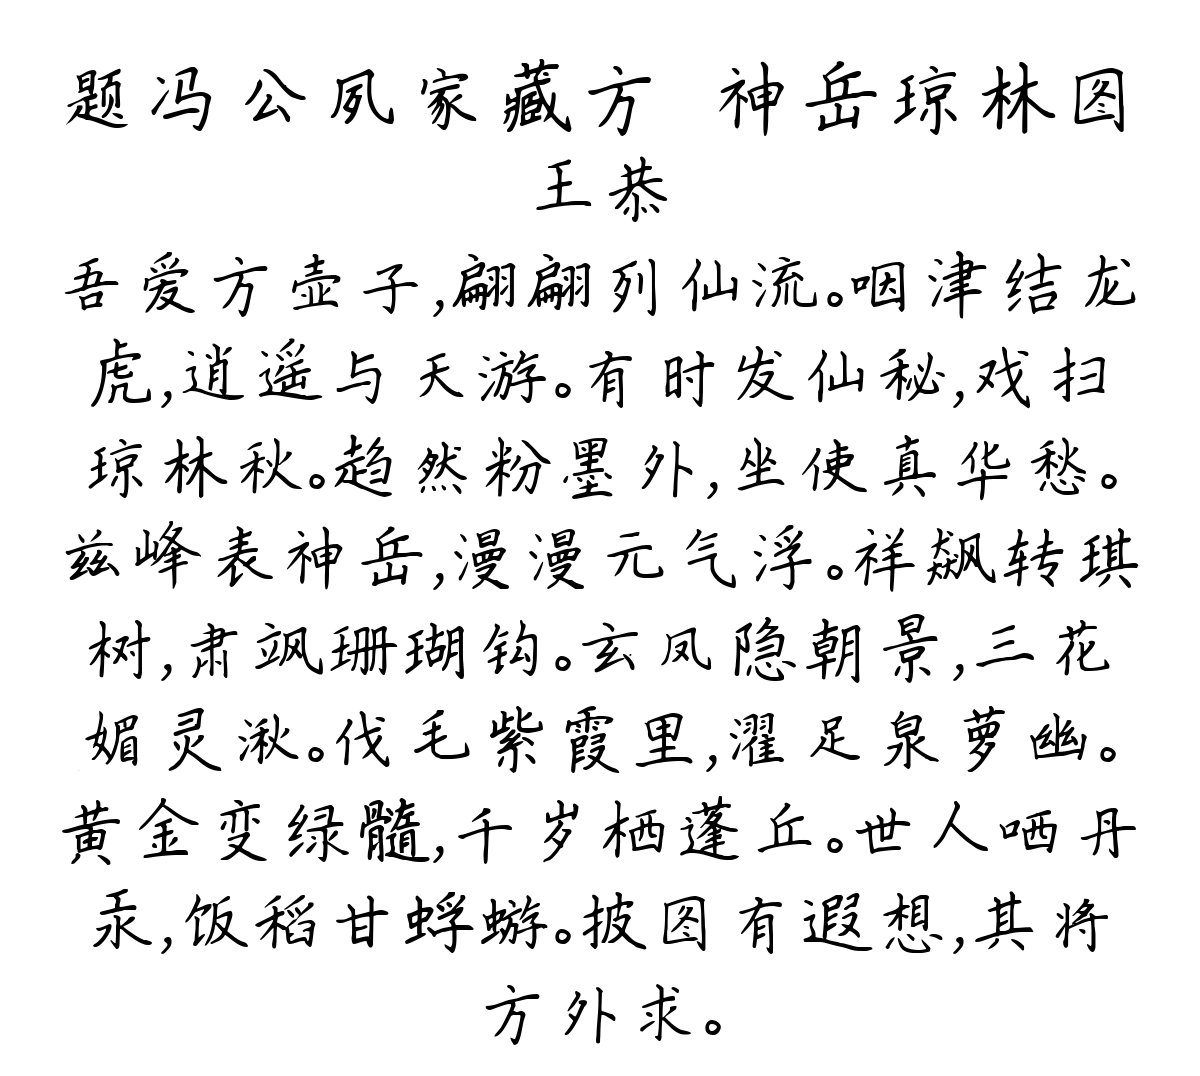 题冯公夙家藏方 神岳琼林图
王恭
吾爱方壶子,翩翩列仙流。咽津结龙
虎,逍遥与天游。有时发仙秘,戏扫
琼林秋。趋然粉墨外,坐使真华愁。
兹峰表神岳,漫漫元气浮。祥飙转琪
树,肃飒珊瑚钩。玄凤隐朝景,三花
媚灵湫。伐毛紫霞里,濯足泉萝幽。
黄金变绿髓,千岁栖蓬丘。世人哂丹
汞,饭稻甘蜉蝣。披图有遐想,其将
方外求。